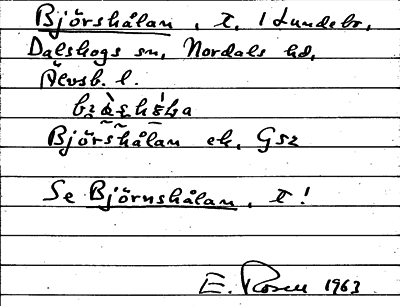 Björshålan, t, i Lundebr,
Dalskogs sn, Nordals hd,
Älvsb. l.
Björshålan ek. Gsz
Se Björnshålan, t!
E. Rosell 1963